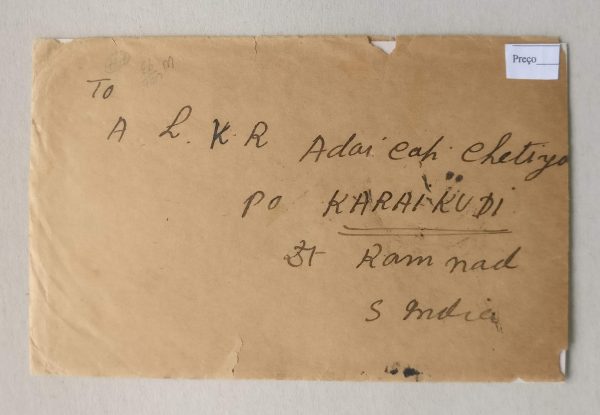 Preço
To
A L. K. R Adai cap. Chetiya
PO KARAIKUDI
Dt Ramnad
S India